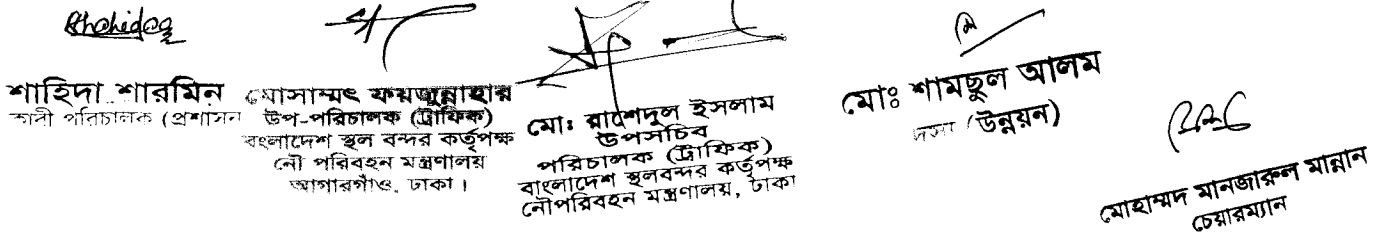 Shahida
শাহিদা শারমিন
কারী পরিচালক (প্রশাসন
মোসাম্মৎ ফয়জুন্নাহার
উপ-পরিচালক (ট্রাফিক)
বাংলাদেশ স্থল বন্দর কর্তৃপক্ষ
নৌ পরিবহন মন্ত্রণালয়
আগারগাঁও, ঢাকা।
মোঃ রাশেদুল ইসলাম
উপসচিব
পরিচালক (ট্রাফিক)
বাংলাদেশ স্থলবন্দর কর্তৃপক্ষ
নৌপরিবহন মন্ত্রণালয়, ঢাকা
মোঃ শামছুল আলম
সদস্য (উন্নয়ন)
মোহাম্মদ মানজারুল মান্নান
চেয়ারম্যান